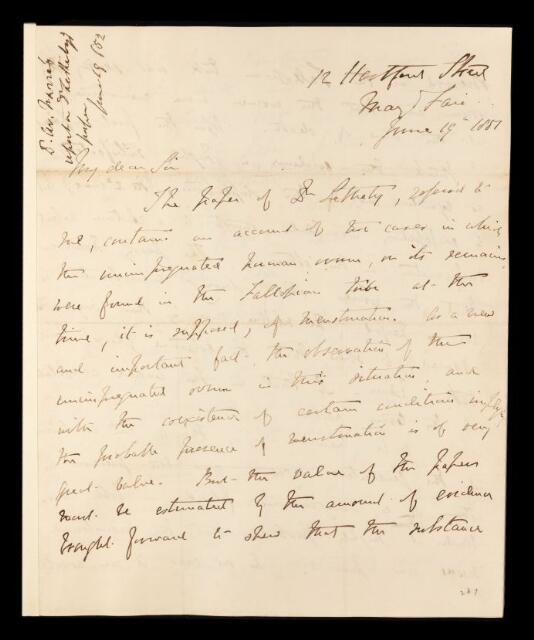 Dr. Arthur Farre's
report on Dr Letheby's
paper
June 19 1852
12 Hertford Street
May Fair
June 19th 1851
My dear Sir
The paper of Dr Letheby, referred to
me, contains an account of two cases in which
the unimpregnated human ovum, or its remains,
were found in the Fallopian tube at the
time, it is supposed, of menstruation. As a new
and important fact the observation of the
unimpregnated ovum in this situation and
with the coexistence of certain conditions implying
the probable presence of menstruation is of very
great value. But the value of the papers
must be estimated by the amount of evidence
brought forward to shew that the substance